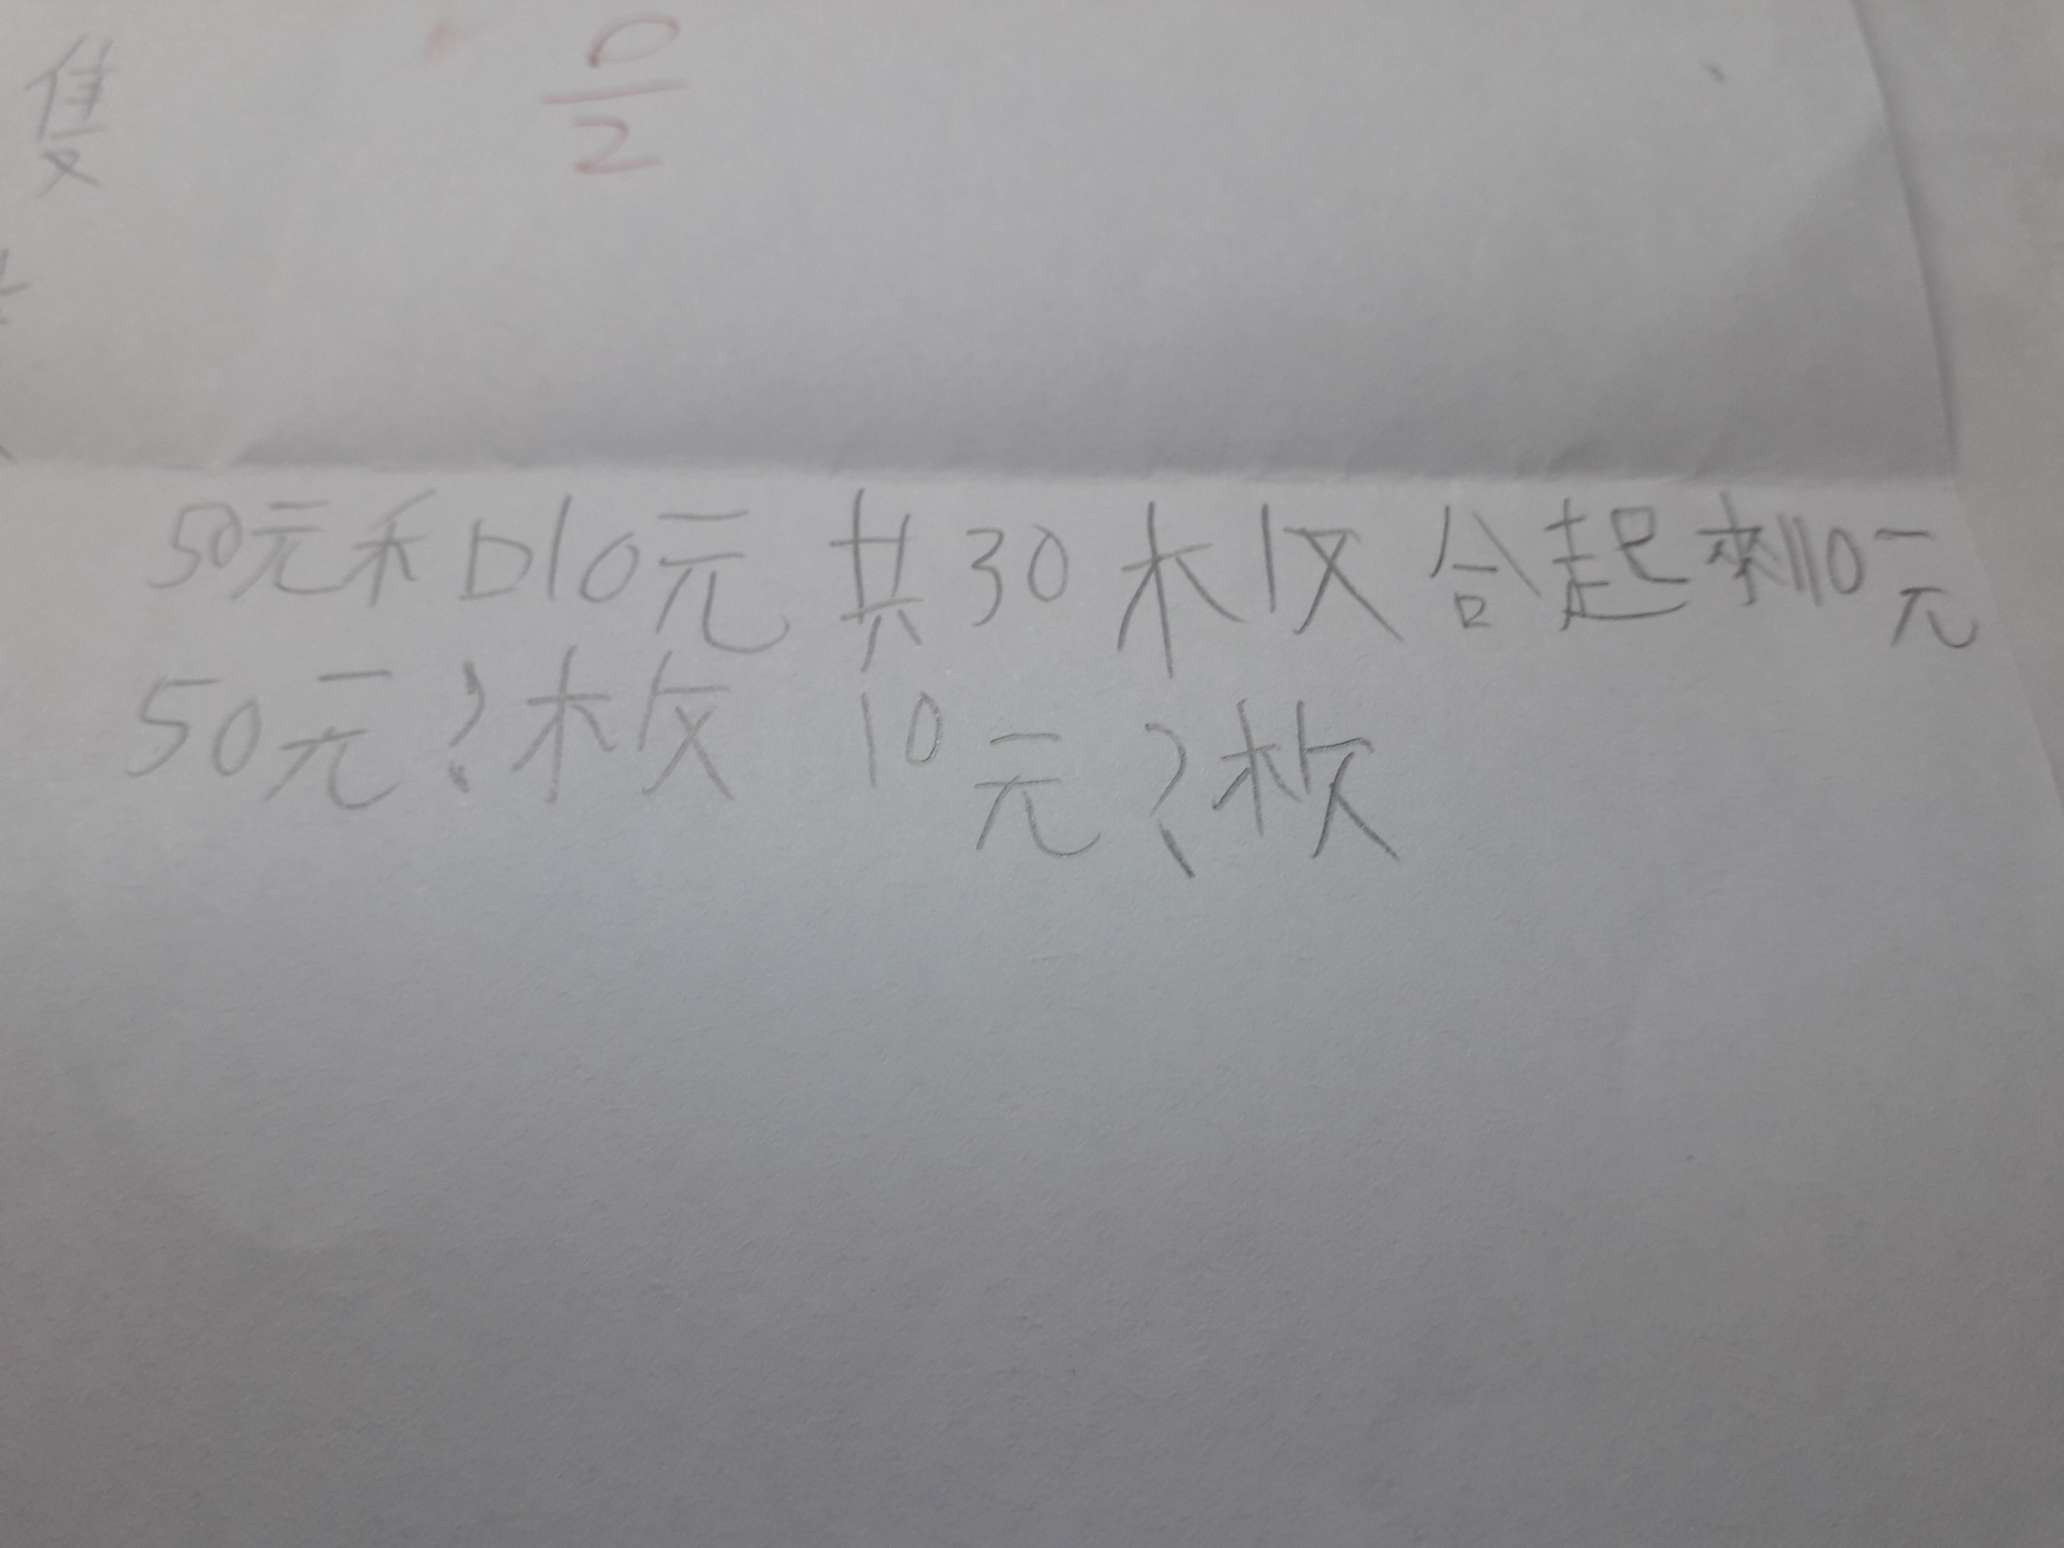 隻
0
2
50元和10元共30枚合起來1110元
50元?枚 10元?枚